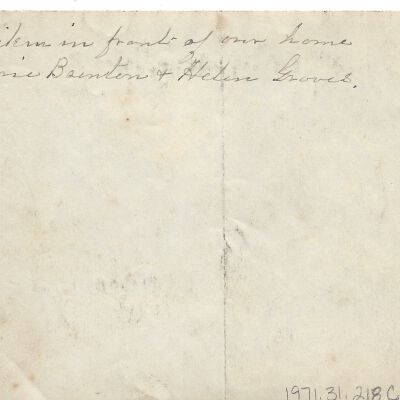 in front of our home
Brenton & Helen Groves.
1971.31.218C